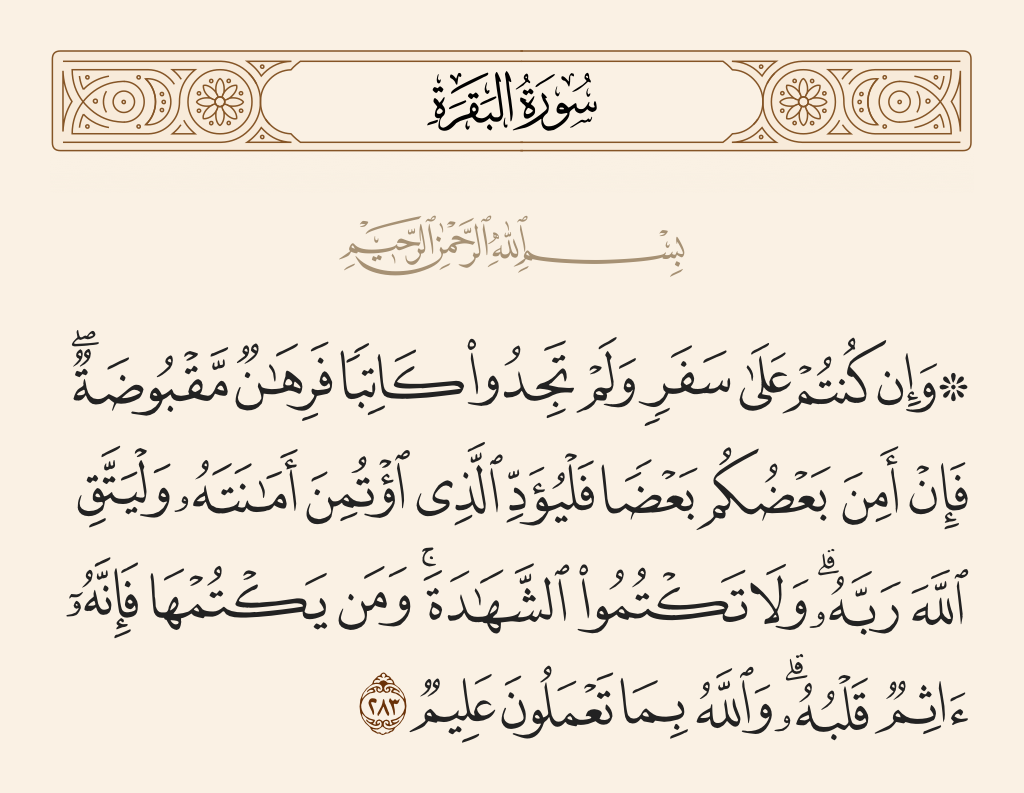 سُورَةُ البَقَرَةِ
بِسْمِ ٱللَّهِ ٱلرَّحْمَٰنِ ٱلرَّحِيمِ
۞ وَإِن كُنتُمْ عَلَىٰ سَفَرٍ وَلَمْ تَجِدُوا۟ كَاتِبًا فَرِهَٰنٌ مَّقْبُوضَةٌ ۖ
فَإِنْ أَمِنَ بَعْضُكُم بَعْضًا فَلْيُؤَدِّ ٱلَّذِى ٱؤْتُمِنَ أَمَٰنَتَهُۥ وَلْيَتَّقِ
ٱللَّهَ رَبَّهُۥ ۗ وَلَا تَكْتُمُوا۟ ٱلشَّهَٰدَةَ ۚ وَمَن يَكْتُمْهَا فَإِنَّهُۥٓ
ءَاثِمٌ قَلْبُهُۥ ۗ وَٱللَّهُ بِمَا تَعْمَلُونَ عَلِيمٌ ٢٨٣